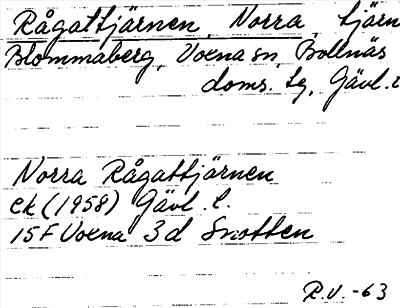 Rågattjärnen, Norra, tjärn
Blommaberg, Voxna sn, Bollnäs
doms. sg, Gävl. l
Norra Rågattjärnen
ek (1958) Gävl. l.
15F Voxna 3d Snotten
R.V. -63